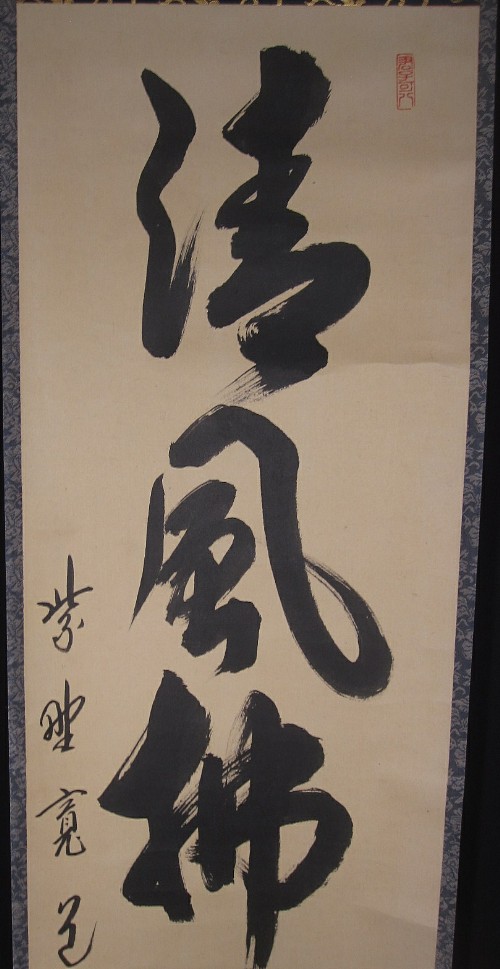 清風拂
紫野寛道